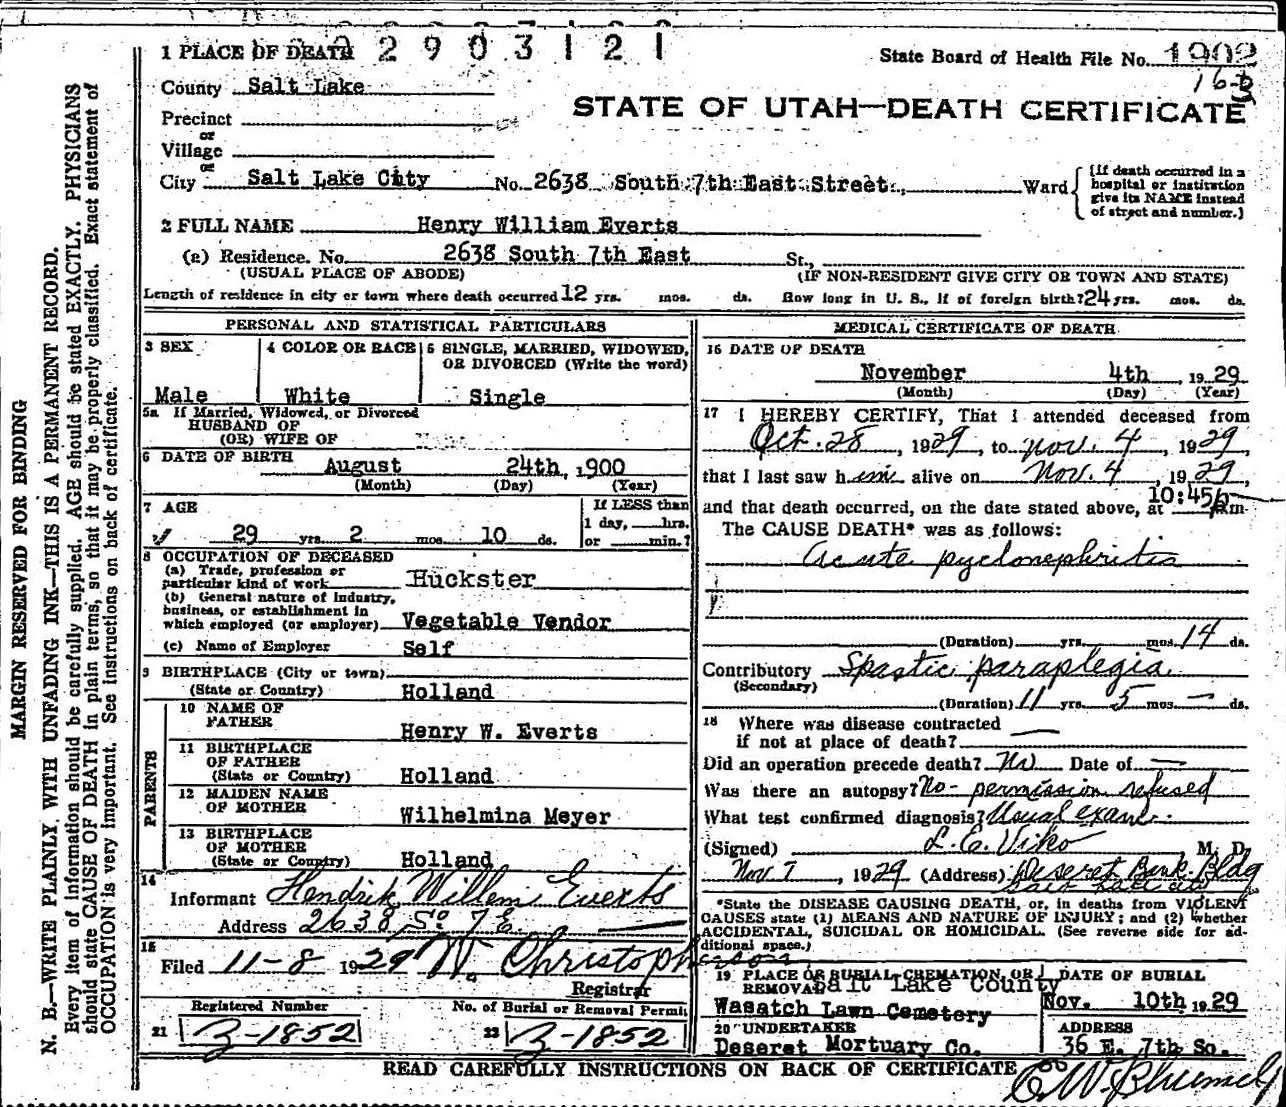 2 9 0 3 1 2 1
1 PLACE OF DEATH
State Board of Health File No. 1902
16-B
County Salt Lake
STATE OF UTAH—DEATH CERTIFICATE
Precinct
or
Village
or
City Salt Lake City No. 2638 South 7th East Street. Ward
{If death occurred in a hospital or institution give its NAME instead of street and number.}
2 FULL NAME Henry William Everts
(a) Residence. No. 2638 South 7th East St.,
(USUAL PLACE OF ABODE) (IF NON-RESIDENT GIVE CITY OR TOWN AND STATE)
Length of residence in city or town where death occurred 12 yrs. mos. ds. How long in U. S., if of foreign birth? 24 yrs. mos. ds.
PERSONAL AND STATISTICAL PARTICULARS
3 SEX
Male
4 COLOR OR RACE
White
5 SINGLE, MARRIED, WIDOWED,
OR DIVORCED (Write the word)
Single
5a If Married, Widowed, or Divorced
HUSBAND OF
(OR) WIFE OF
6 DATE OF BIRTH August 24th, 1900
(Month) (Day) (Year)
7 AGE
29 yrs. 2 mos. 10 ds.
If LESS than
1 day, hrs.
or min.?
8 OCCUPATION OF DECEASED
(a) Trade, profession or
particular kind of work Huckster
(b) General nature of Industry,
business, or establishment in
which employed (or employer) Vegetable Vendor
(c) Name of Employer Self
9 BIRTHPLACE (City or town)
(State or Country) Holland
PARENTS
10 NAME OF
FATHER Henry W. Everts
11 BIRTHPLACE
OF FATHER
(State or Country) Holland
12 MAIDEN NAME
OF MOTHER Wilhelmina Meyer
13 BIRTHPLACE
OF MOTHER
(State or Country) Holland
14
Informant Hendrik Willem Everts
Address 2638 So 7 E.
15
Filed 11-8 1929 W. Christopherson
Registrar
Registered Number No. of Burial or Removal Permit
21 Z-1852 22 Z-1852
MEDICAL CERTIFICATE OF DEATH
16 DATE OF DEATH
November 4th, 1929
(Month) (Day) (Year)
17 I HEREBY CERTIFY, That I attended deceased from
Oct. 28, 1929, to Nov. 4, 1929,
that I last saw him alive on Nov. 4, 1929,
and that death occurred, on the date stated above, at 10:45 p m.
The CAUSE DEATH* was as follows:
Acute pyelonephritis
(Duration) yrs. mos. 14 ds.
Contributory Spastic paraplegia
(Secondary)
(Duration) 11 yrs. 5 mos. — ds.
18 Where was disease contracted
if not at place of death? —
Did an operation precede death? No Date of —
Was there an autopsy? No - permission refused
What test confirmed diagnosis? Usual exam.
(Signed) L. E. Viko, M. D.
Nov 7, 1929 (Address) Deseret Bank Bldg
Salt Lake City
*State the DISEASE CAUSING DEATH, or, in deaths from VIOLENT
CAUSES state (1) MEANS AND NATURE OF INJURY; and (2) whether
ACCIDENTAL, SUICIDAL OR HOMICIDAL. (See reverse side for ad-
ditional space.)
19 PLACE OF BURIAL, CREMATION, OR
REMOVAL Salt Lake County
Wasatch Lawn Cemetery
DATE OF BURIAL
Nov. 10th 1929
20 UNDERTAKER
Deseret Mortuary Co.
ADDRESS
36 E. 7th So.
READ CAREFULLY INSTRUCTIONS ON BACK OF CERTIFICATE
MARGIN RESERVED FOR BINDING
N. B.—WRITE PLAINLY, WITH UNFADING INK—THIS IS A PERMANENT RECORD.
Every item of information should be carefully supplied. AGE should be stated EXACTLY. PHYSICIANS
should state CAUSE OF DEATH in plain terms, so that it may be properly classified. Exact statement of
OCCUPATION is very important. See instructions on back of certificate.